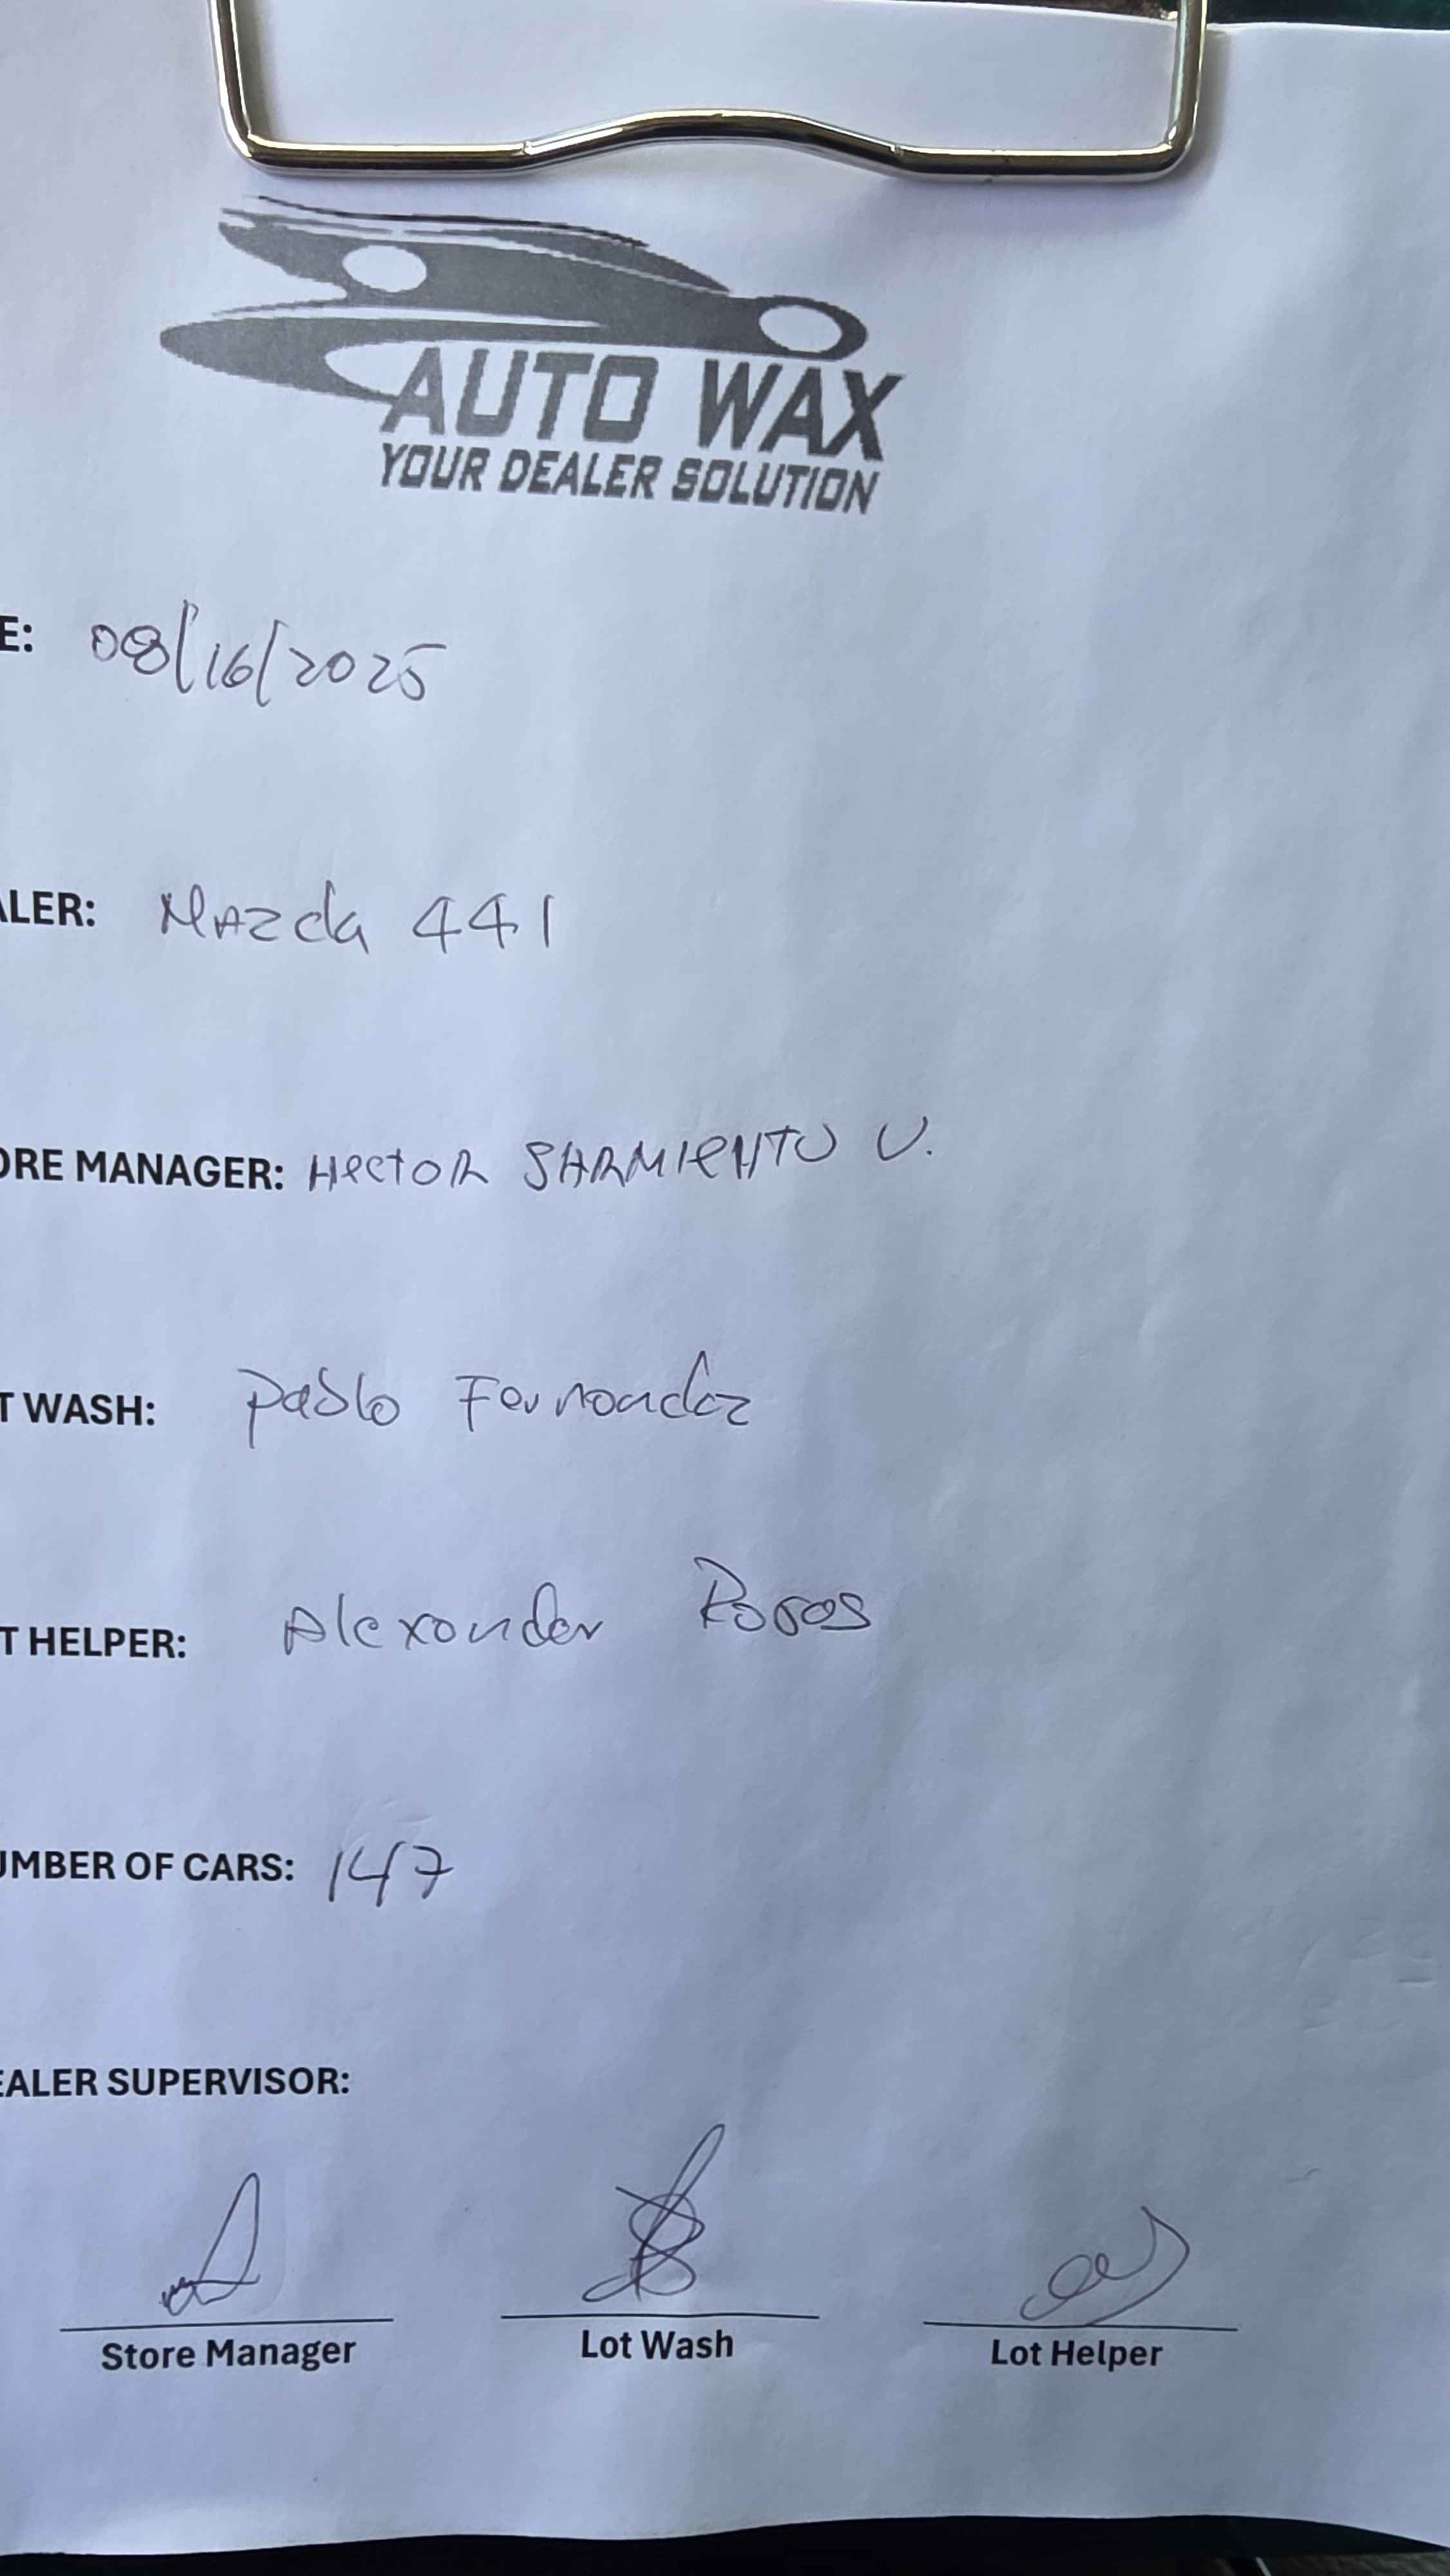 AUTO WAX
YOUR DEALER SOLUTION
E: 08/16/2025
ALER: Mazda 441
ORE MANAGER: HectOR SARMIeNTO U.
T WASH: Pablo Fernandez
T HELPER: Alexander Rosas
UMBER OF CARS: 147
EALER SUPERVISOR:
Store Manager Lot Wash Lot Helper